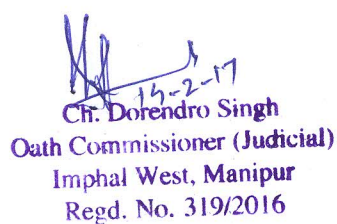 14-2-17
Ch. Dorendro Singh
Oath Commissioner (Judicial)
Imphal West, Manipur
Regd. No. 319/2016